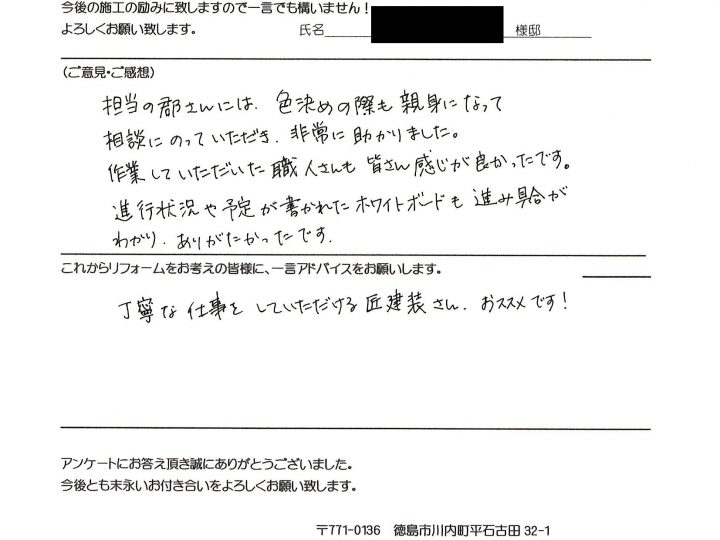 今後の施工の励みに致しますので一言でも構いません！
よろしくお願い致します。 氏名 様邸
（ご意見・ご感想）
担当の郡さんには、色決めの際も親身になって
相談にのっていただき、非常に助かりました。
作業していただいた職人さんも皆さん感じが良かったです。
進行状況や予定が書かれたホワイトボードも進み具合が
わかり、ありがたかったです。
これからリフォームをお考えの皆様に、一言アドバイスをお願いします。
丁寧な仕事をしていただける匠建装さん、おススメです！
アンケートにお答え頂き誠にありがとうございました。
今後とも末永いお付き合いをよろしくお願い致します。
〒771-0136 徳島市川内町平石古田 32-1